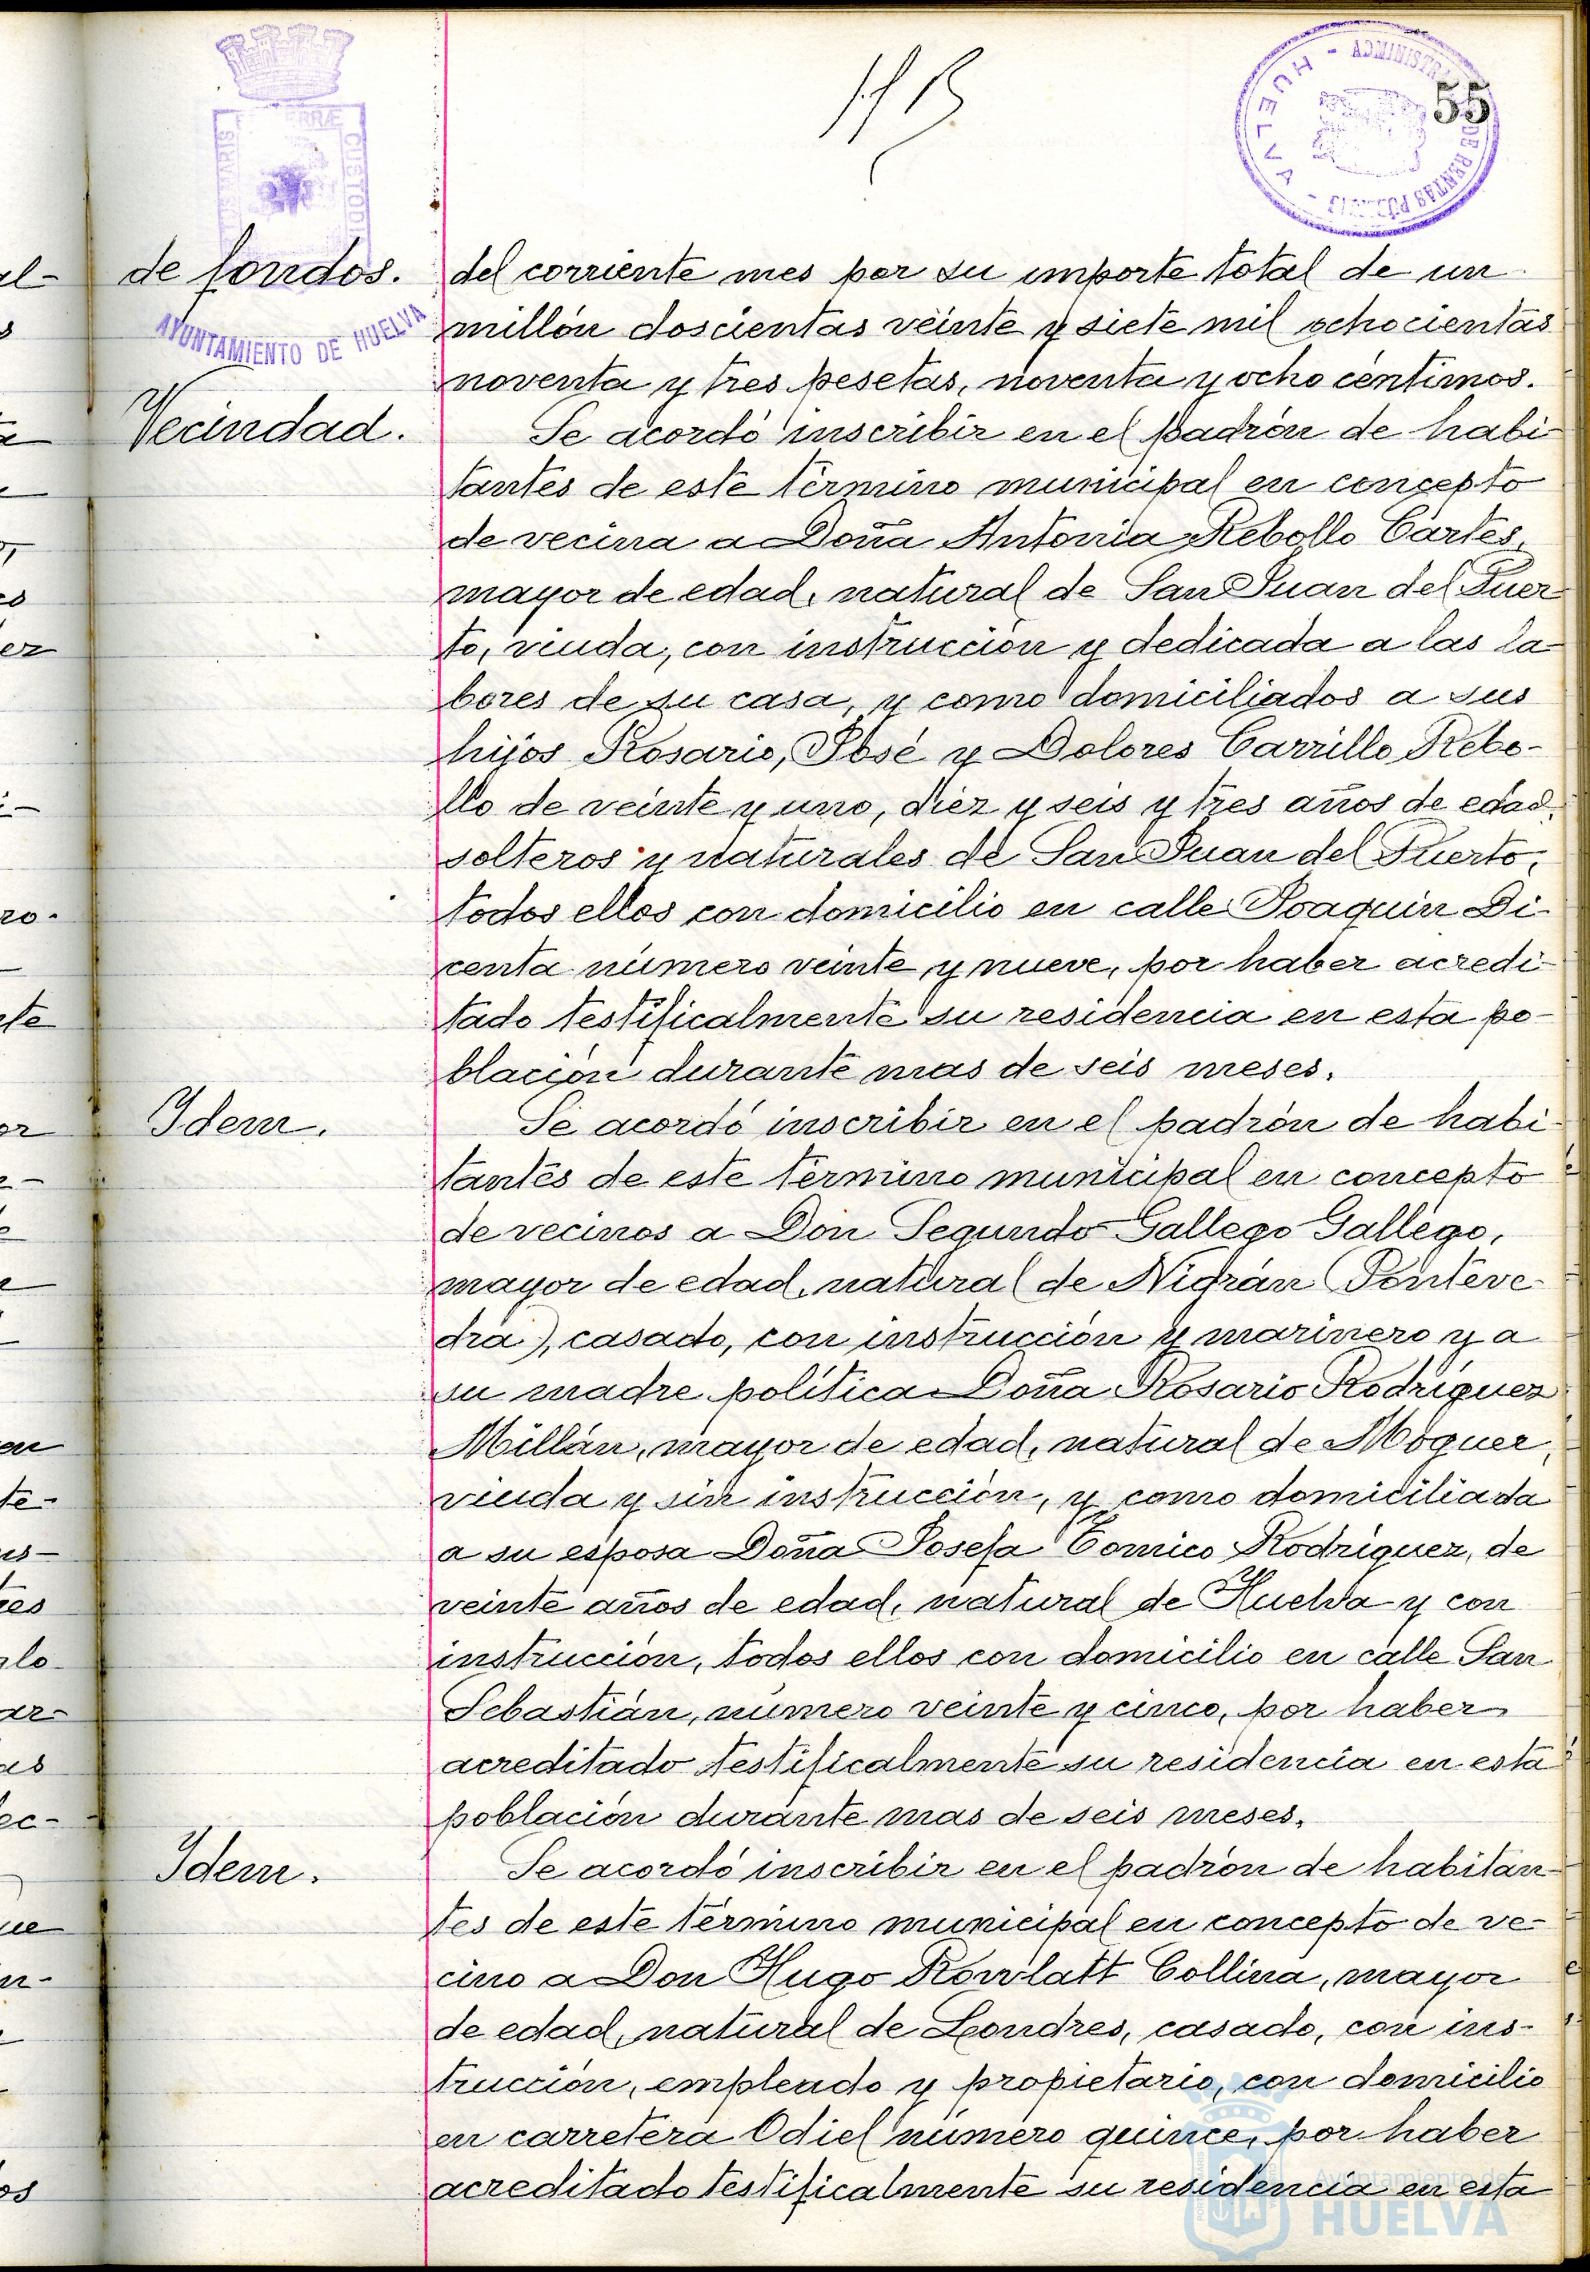 55
HUELVA - ADMINISTRA DE RENTAS PÚBLICAS -
CUSTODI
AYUNTAMIENTO DE HUELVA
de fondos.
del corriente mes por su importe total de un
millón doscientas veinte y siete mil ochocientas
noventa y tres pesetas, noventa y ocho céntimos.
Vecindad.
Se acordó inscribir en el padrón de habi-
tantes de este término municipal en concepto
de vecina a Doña Antonia Rebollo Cartes,
mayor de edad, natural de San Juan del Puer-
to, viuda, con instrucción y dedicada a las la-
bores de su casa, y como domiciliados a sus
hijos Rosario, José y Dolores Carrillo Rebo-
llo de veinte y uno, diez y seis y tres años de edad,
solteros y naturales de San Juan del Puerto,
todos ellos con domicilio en calle Joaquin Di-
centa número veinte y nueve, por haber acredi-
tado testificalmente su residencia en esta po-
blación durante mas de seis meses.
Idem.
Se acordó inscribir en el padrón de habi-
tantes de este término municipal en concepto
de vecinos a Don Segundo Gallego Gallego,
mayor de edad, natural de Nigrán (Ponteve-
dra), casado, con instrucción y marinero y a
su madre política Doña Rosario Rodríguez
Millán, mayor de edad, natural de Moguer,
viuda y sin instrucción, y como domiciliada
a su esposa Doña Josefa Tomico Rodríguez, de
veinte años de edad, natural de Huelva y con
instrucción, todos ellos con domicilio en calle San
Sebastián, número veinte y cinco, por haber
acreditado testificalmente su residencia en esta
población durante mas de seis meses.
Idem.
Se acordó inscribir en el padrón de habitan-
tes de este término municipal en concepto de ve-
cino a Don Hugo Rowlatt Collina, mayor
de edad, natural de Londres, casado, con ins-
trucción, empleado y propietario, con domicilio
en carretera Odiel número quince, por haber
acreditado testificalmente su residencia en esta
Ayuntamiento de
HUELVA